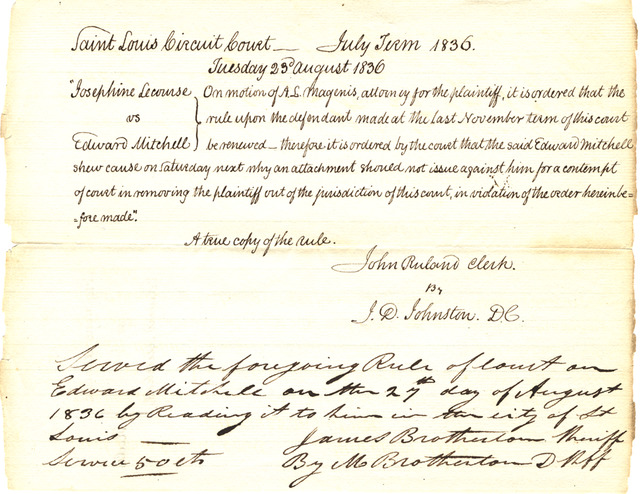 Saint Louis Circuit Court — July Term 1836.
Tuesday 23d August 1836
"Josephine Lecourse
vs
Edward Mitchell
On motion of A.L. Magenis, attorney for the plaintiff, it is ordered that the
rule upon the defendant made at the last November term of this court
be renewed — therefore it is ordered by the court that the said Edward Mitchell
shew cause on Saturday next why an attachment should not issue against him for a contempt
of court in removing the plaintiff out of the jurisdiction of this court, in violation of the order hereinbe=
=fore made".
A true copy of the rule.
John Ruland Clerk.
By
J. D. Johnston. D.C.
Served the foregoing Rule of Court on
Edward Mitchell on the 27th day of August
1836 by Reading it to him in the city of St
Louis —
James Brotherton Sheriff
Service 50 cts
By M Brotherton D Shff